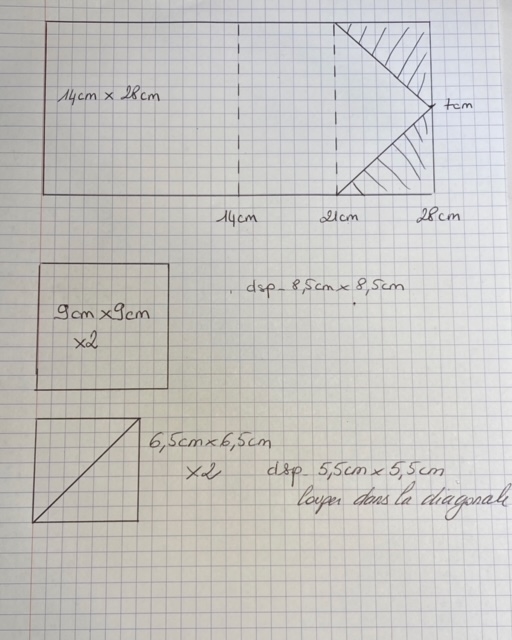 14cm x 28cm
7cm
14cm
21cm
28cm
dsp- 8,5cm x 8,5cm
9cm x 9cm
x2
6,5cm x 6,5cm
x2
dsp- 5,5cm x 5,5cm
couper dans la diagonale